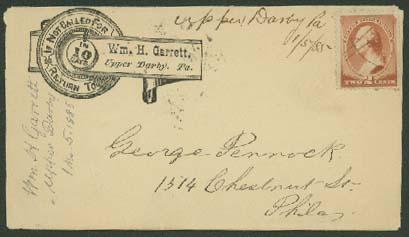 IF NOT CALLED FOR
IN
10
DAYS
RETURN TO
Wm. H. Garrett,
Upper Darby, Pa.
Upper Darby Pa
1/5/85
TWO CENTS
Wm H Garrett
Upper Darby
1 mo. 5. 1885
George Pennock
1514 Chestnut St
Phila